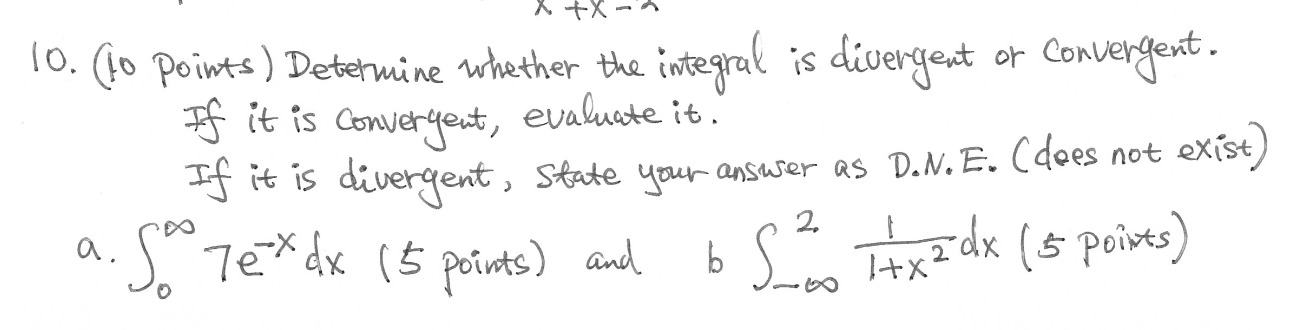 x + x -
10. (10 points) Determine whether the integral is divergent or convergent.
If it is convergent, evaluate it.
If it is divergent, state your answer as D.N.E. (does not exist)
a. ∫₀^∞ 7e^{-x} dx (5 points) and b ∫_{-∞}^{2} \frac{1}{1+x^2} dx (5 points)